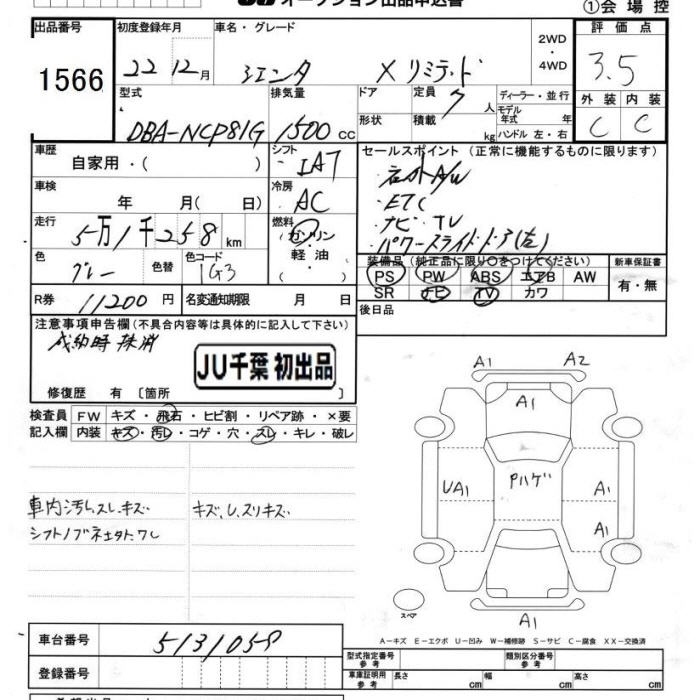 オークション出品申込書
①会場控
出品番号 1566
初度登録年月 22 12月
車名・グレード シエンタ Xリミテッド
2WD・4WD
評価点 3.5
外装 C 内装 C
型式 DBA-NCP81G
排気量 1500 cc
ドア 形状
定員 7 人
積載 kg
ディーラー・並行
モデル年式 年
ハンドル 左・右
車歴 自家用・( )
シフト IA7
セールスポイント(正常に機能するものに限ります)
・社外A/W
・ETC
・ナビ・TV
・パワースライドドア(左)
車検 年 月( 日)
冷房 AC
走行 5万1千258km
燃料 ガソリン・軽油・( )
色 グレー 色替
色コード 1G3
装備品(純正品に限り○をつけてください)
PS PW ABS エアB AW
SR ナビ TV カワ
新車保証書 有・無
R券 11200円
名変通知期限 月 日
後日品
注意事項申告欄(不具合内容等は具体的に記入して下さい)
成約時抹消
JU千葉 初出品
修復歴 有 〔箇所
検査員記入欄
FW キズ・飛石・ヒビ割・リペア跡・×要
内装 キズ・汚レ・コゲ・穴・スレ・キレ・破レ
車内汚レ、スレ、キズ
キズ、U、スリキズ
A1 A2
A1
UA1 Pハゲ A1
A1
A1
スペア
A-キズ E-エクボ U-凹み W-補修跡 S-サビ C-腐食 XX-交換済
車台番号 5131058
登録番号
型式指定番号 参考
類別区分番号 参考
車庫証明用 参考 長さ cm 幅 cm 高さ cm